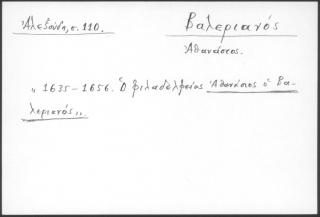 Ἀλεξούδη, σ. 110.
Βαλεριανός
Ἀθανάσιος.
„ 1635-1656. Ὁ Φιλαδελφείας Ἀθανάσιος ὁ Βα-
λεριανός „.